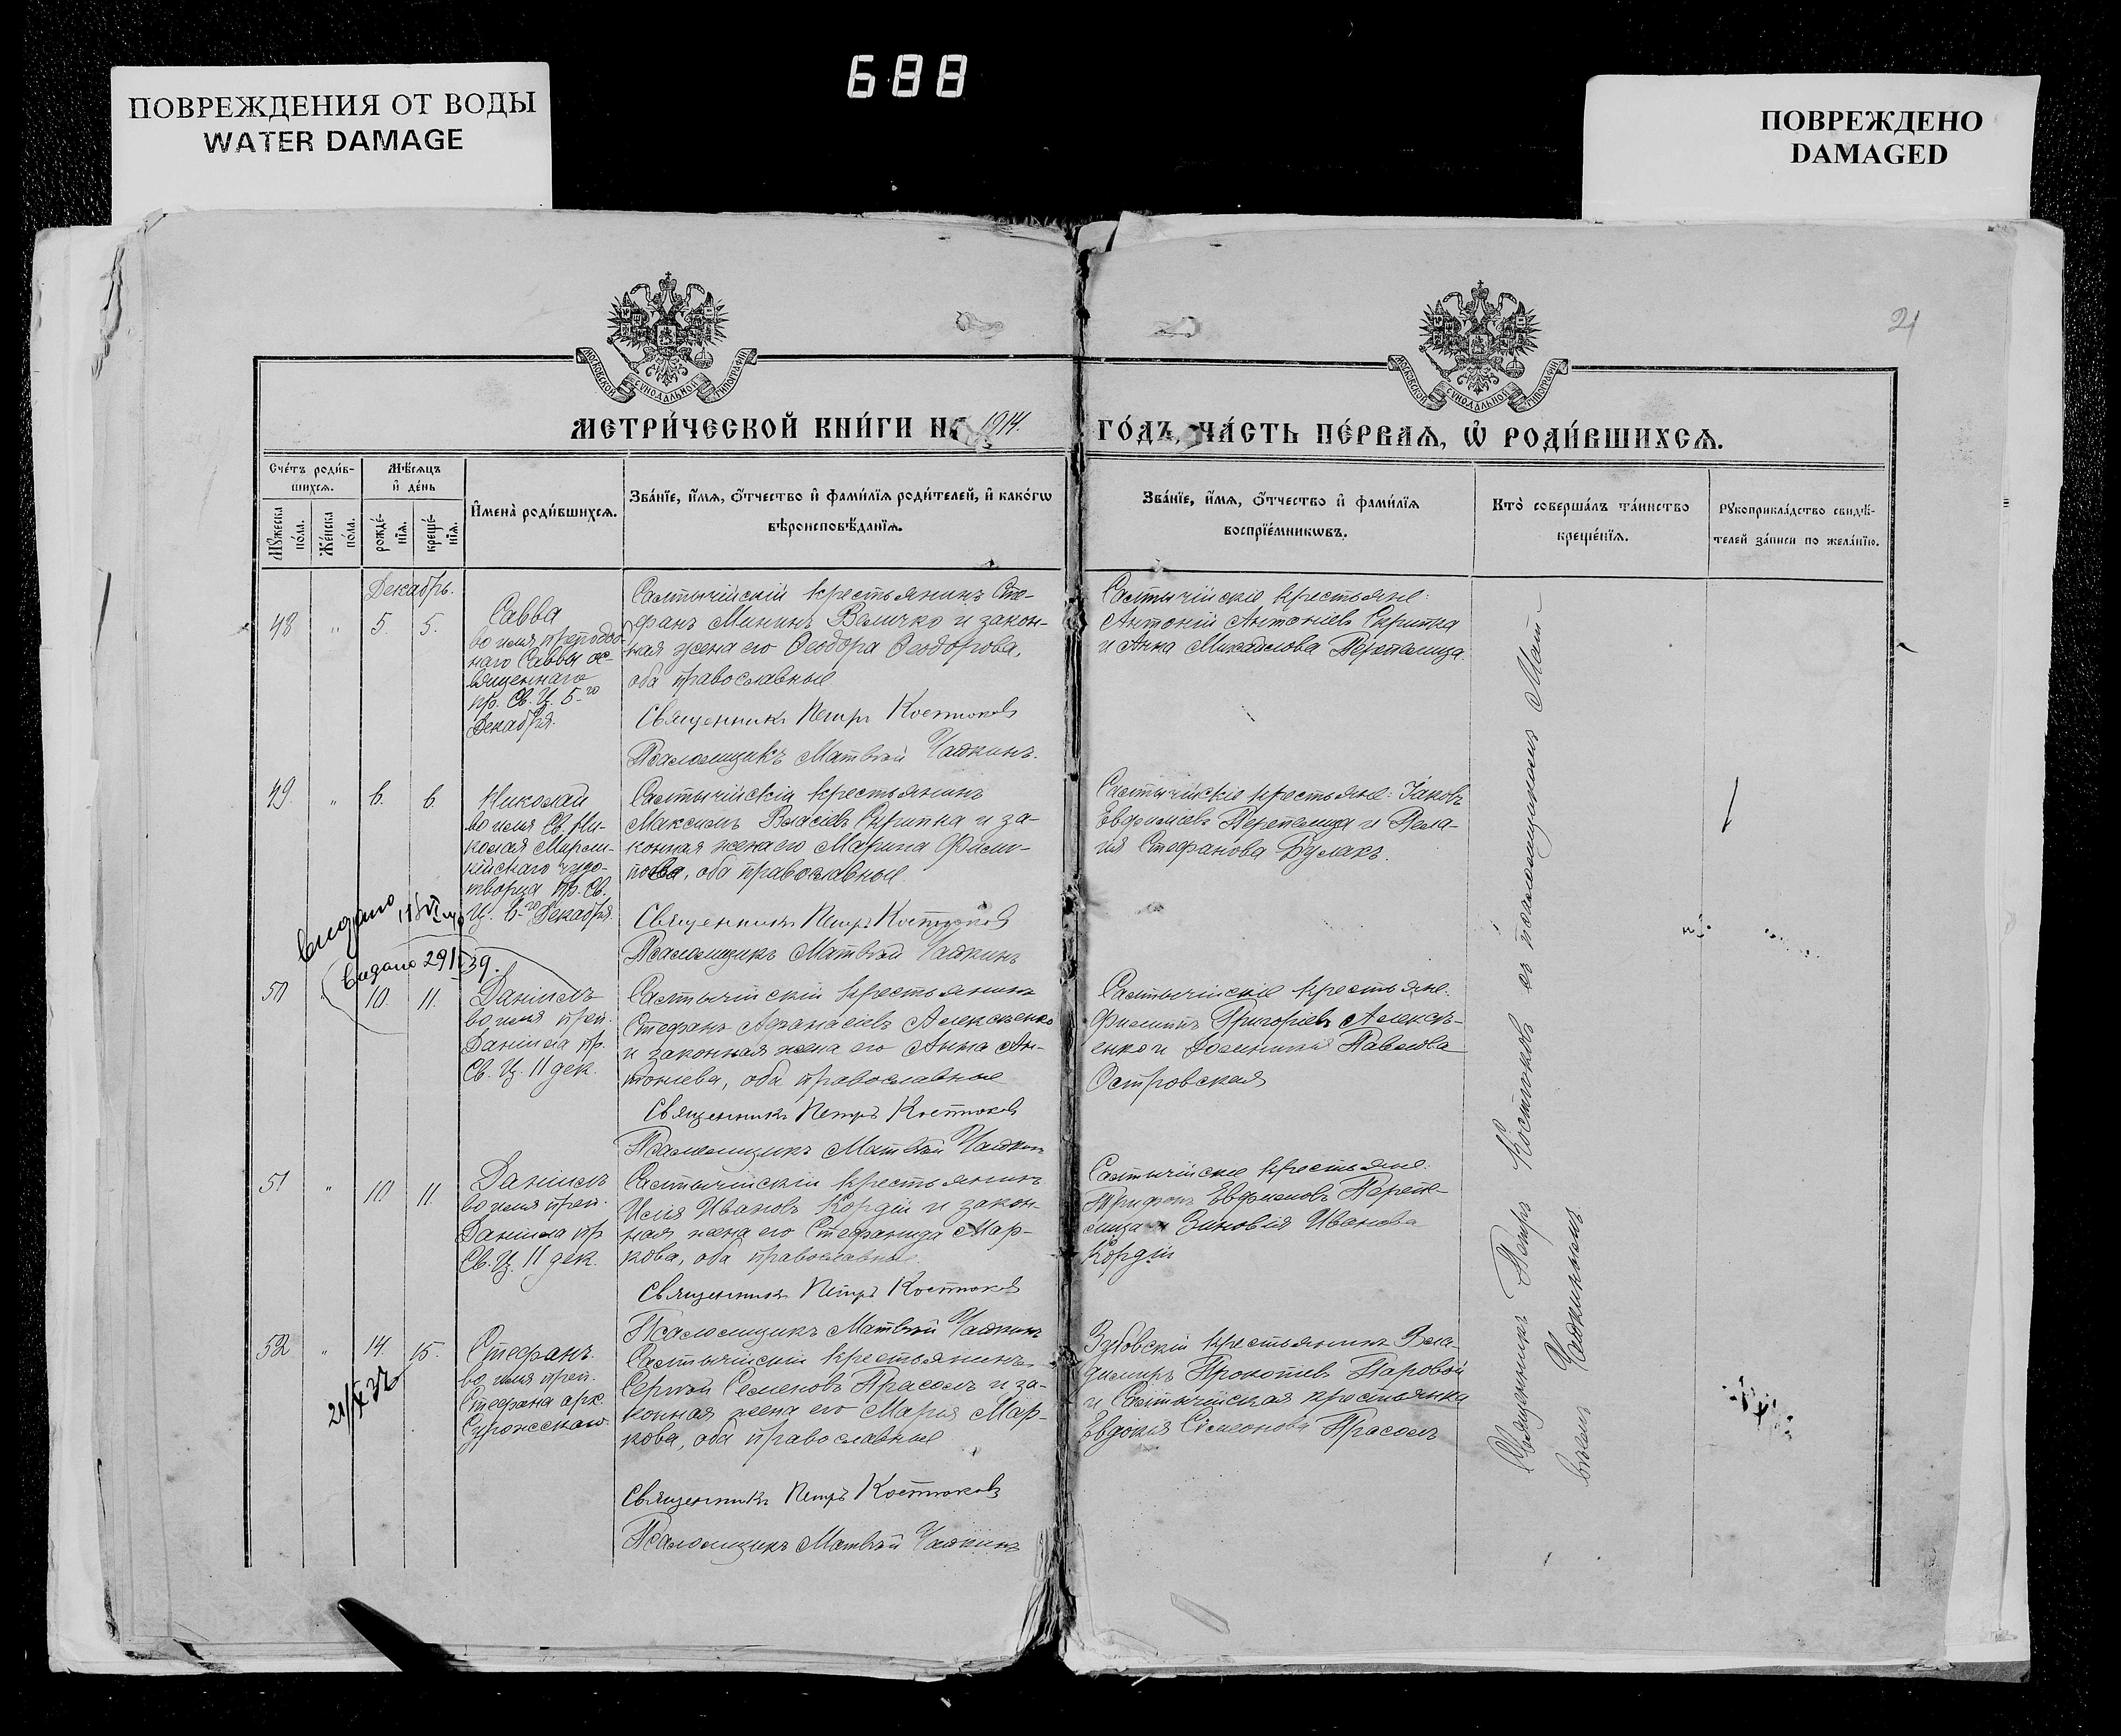 688
ПОВРЕЖДЕНИЯ ОТ ВОДЫ
WATER DAMAGE
ПОВРЕЖДЕНО
DAMAGED
21
МОСКОВСКОЙ СѴНОДАЛЬНОЙ ТИПОГРАФІИ
МОСКОВСКОЙ СѴНОДАЛЬНОЙ ТИПОГРАФІИ
МЕТРИ́ЧЕСКОЙ КНИ́ГИ НА 1914.
ГО́ДЪ, ЧА́СТЬ ПЕ́РВАѦ, Ѡ҆ РОДИ́ВШИХСѦ.
Сче́тъ роди́в-
шихсѧ.
Мѣ́сѧцъ
и҆ де́нь
Мꙋ́жеска
по́ла.
Же́нска
по́ла.
рожде́-
нїѧ.
креще́-
нїѧ.
И҆мена̀ роди́вшихсѧ.
Зва́нїе, и҆́мѧ, ѻ҆́тчество и҆ фами́лїѧ роди́телей, и҆ како́гѡ
вѣроисповѣ́данїѧ.
Зва́нїе, и҆́мѧ, ѻ҆́тчество и҆ фами́лїѧ
воспрїе́мникѡвъ.
Кто̀ соверша́лъ та́инство
креще́нїѧ.
Рꙋкоприкла́дство свидѣ́-
телей за́писи по жела́нїю.
Декабрь.
48 " 5. 5.
Савва
во имя преподоб-
наго Саввы ос-
вященнаго
пр. Св. Ц. 5-го
Декабря.
Салтычійскій крестьянинъ Сте-
фанъ Мининъ Величко и закон-
ная жена его Ѳеодора Ѳеодорова,
оба православные
Священникъ Петръ Костюковъ
Псаломщикъ Матвѣй Чашкинъ.
Салтычійскіе крестьяне:
Антоній Антоніевъ Скрипка
и Анна Михайлова Перепелица.
49. " 6. 6
Николай
во имя Св. Ни-
колая Мирли-
кійскаго чудо-
творца пр. Св.
Ц. 6-го Декабря.
Салтычійскій крестьянинъ
Максимъ Власіевъ Скрипка и за-
конная жена его Марина Филип-
пова, оба православные
Священникъ Петръ Костюковъ
Псаломщикъ Матвѣй Чашкинъ
Салтычійскіе крестьяне: Іаковъ
Евфиміевъ Перепелица и Пела-
гія Стефанова Булахъ.
видано
видано 29 39.
50 " 10. 11.
Даніилъ
во имя преп.
Даніила пр.
Св. Ц. 11 дек.
Салтычійскій крестьянинъ
Стефанъ Аѳанасіевъ Алексѣенко
и законная жена его Анна Ан-
тоніева, оба православные
Священникъ Петръ Костюковъ
Псаломщикъ Матвѣй Чашкинъ
Салтычійскіе крестьяне:
Филиппъ Григоріевъ Алексѣ-
енко и Домникія Павлова
Островская
51 " 10 11.
Даніилъ
во имя преп.
Даніила пр
Св. Ц. 11 дек.
Салтычійскій крестьянинъ
Илія Ивановъ Кордій и закон-
ная жена его Стефанида Мар-
кова, оба православные.
Священникъ Петръ Костюковъ
Псаломщикъ Матвѣй Чашкинъ
Салтычійскіе крестьяне:
Трифонъ Евфимовъ Перепе-
лица и Зиновія Иванова
Кордій
52 " 14. 15.
Стефанъ
во имя преп.
Стефана арх.
Сурожскаго.
Салтычійскій крестьянинъ
Сергѣй Семеновъ Прасолъ и за-
конная жена его Марія Мар-
кова, оба православные
Священникъ Петръ Костюковъ
Псаломщикъ Матвѣй Чашкинъ
Зубовскій крестьянинъ Вла-
димиръ Прокопіевъ Паровой
и Салтычійская крестьянка
Евдокія Симеонова Прасолъ
Священникъ Петръ Костюковъ съ псаломщикомъ Мат-
вѣемъ Чашкинымъ